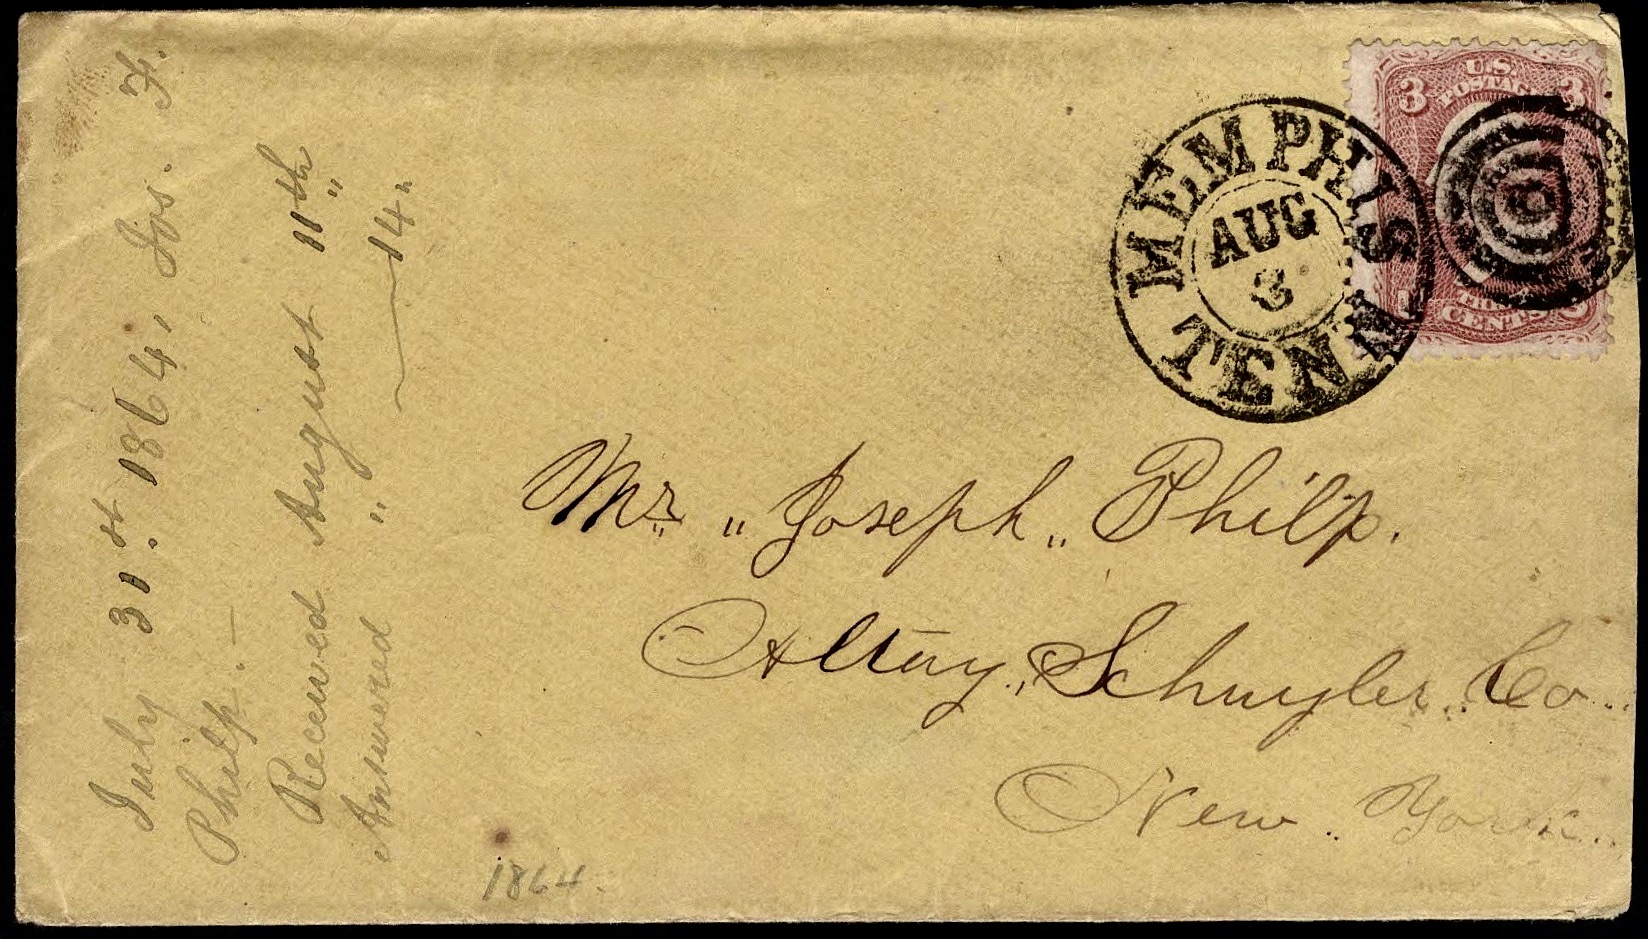 July 31st 1864, Jos. F.
Philp.—
Received August 11th
Answered " — 14"
MEMPHIS
AUG
3
TENN
3 U.S. 3
POSTAGE
THREE
CENTS
Mr " Joseph " Philp.
Altay, Schuyler Co.
New York
1864.